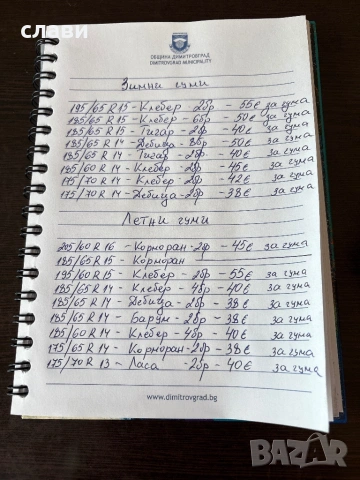 слави
ОБЩИНА ДИМИТРОВГРАД
DIMITROVGRAD MUNICIPALITY
Зимни гуми
195/65 R 15 - Клебер - 2бр - 55€ за гума
185/65 R 15 - Клебер - 6бр - 50€ за гума
185/65 R 15 - Тигар - 2бр - 40€ за гума
185/65 R 14 - Дебица - 8бр - 50€ за гума
185/65 R 14 - Тигар - 2бр - 40€ за гума
185/60 R 14 - Клебер - 2бр - 45€ за гума
175/70 R 14 - Клебер - 2бр - 42€ за гума
175/70 R 14 - Дебица - 2бр - 38€ за гума
Летни гуми
205/60 R 16 - Корморан - 2бр - 45€ за гума
185/65 R 15 - Корморан
195/60 R 15 - Клебер - 2бр - 55€ за гума
185/65 R 14 - Клебер - 4бр - 40€ за гума
185/65 R 14 - Дебица - 2бр - 38€ за гума
185/65 R 14 - Барум - 2бр - 38€ за гума
185/60 R 14 - Клебер - 4бр - 40€ за гума
175/65 R 14 - Корморан - 2бр - 38€ за гума
175/70 R 13 - Ласа - 2бр - 40€ за гума
www.dimitrovgrad.bg
BAZAR